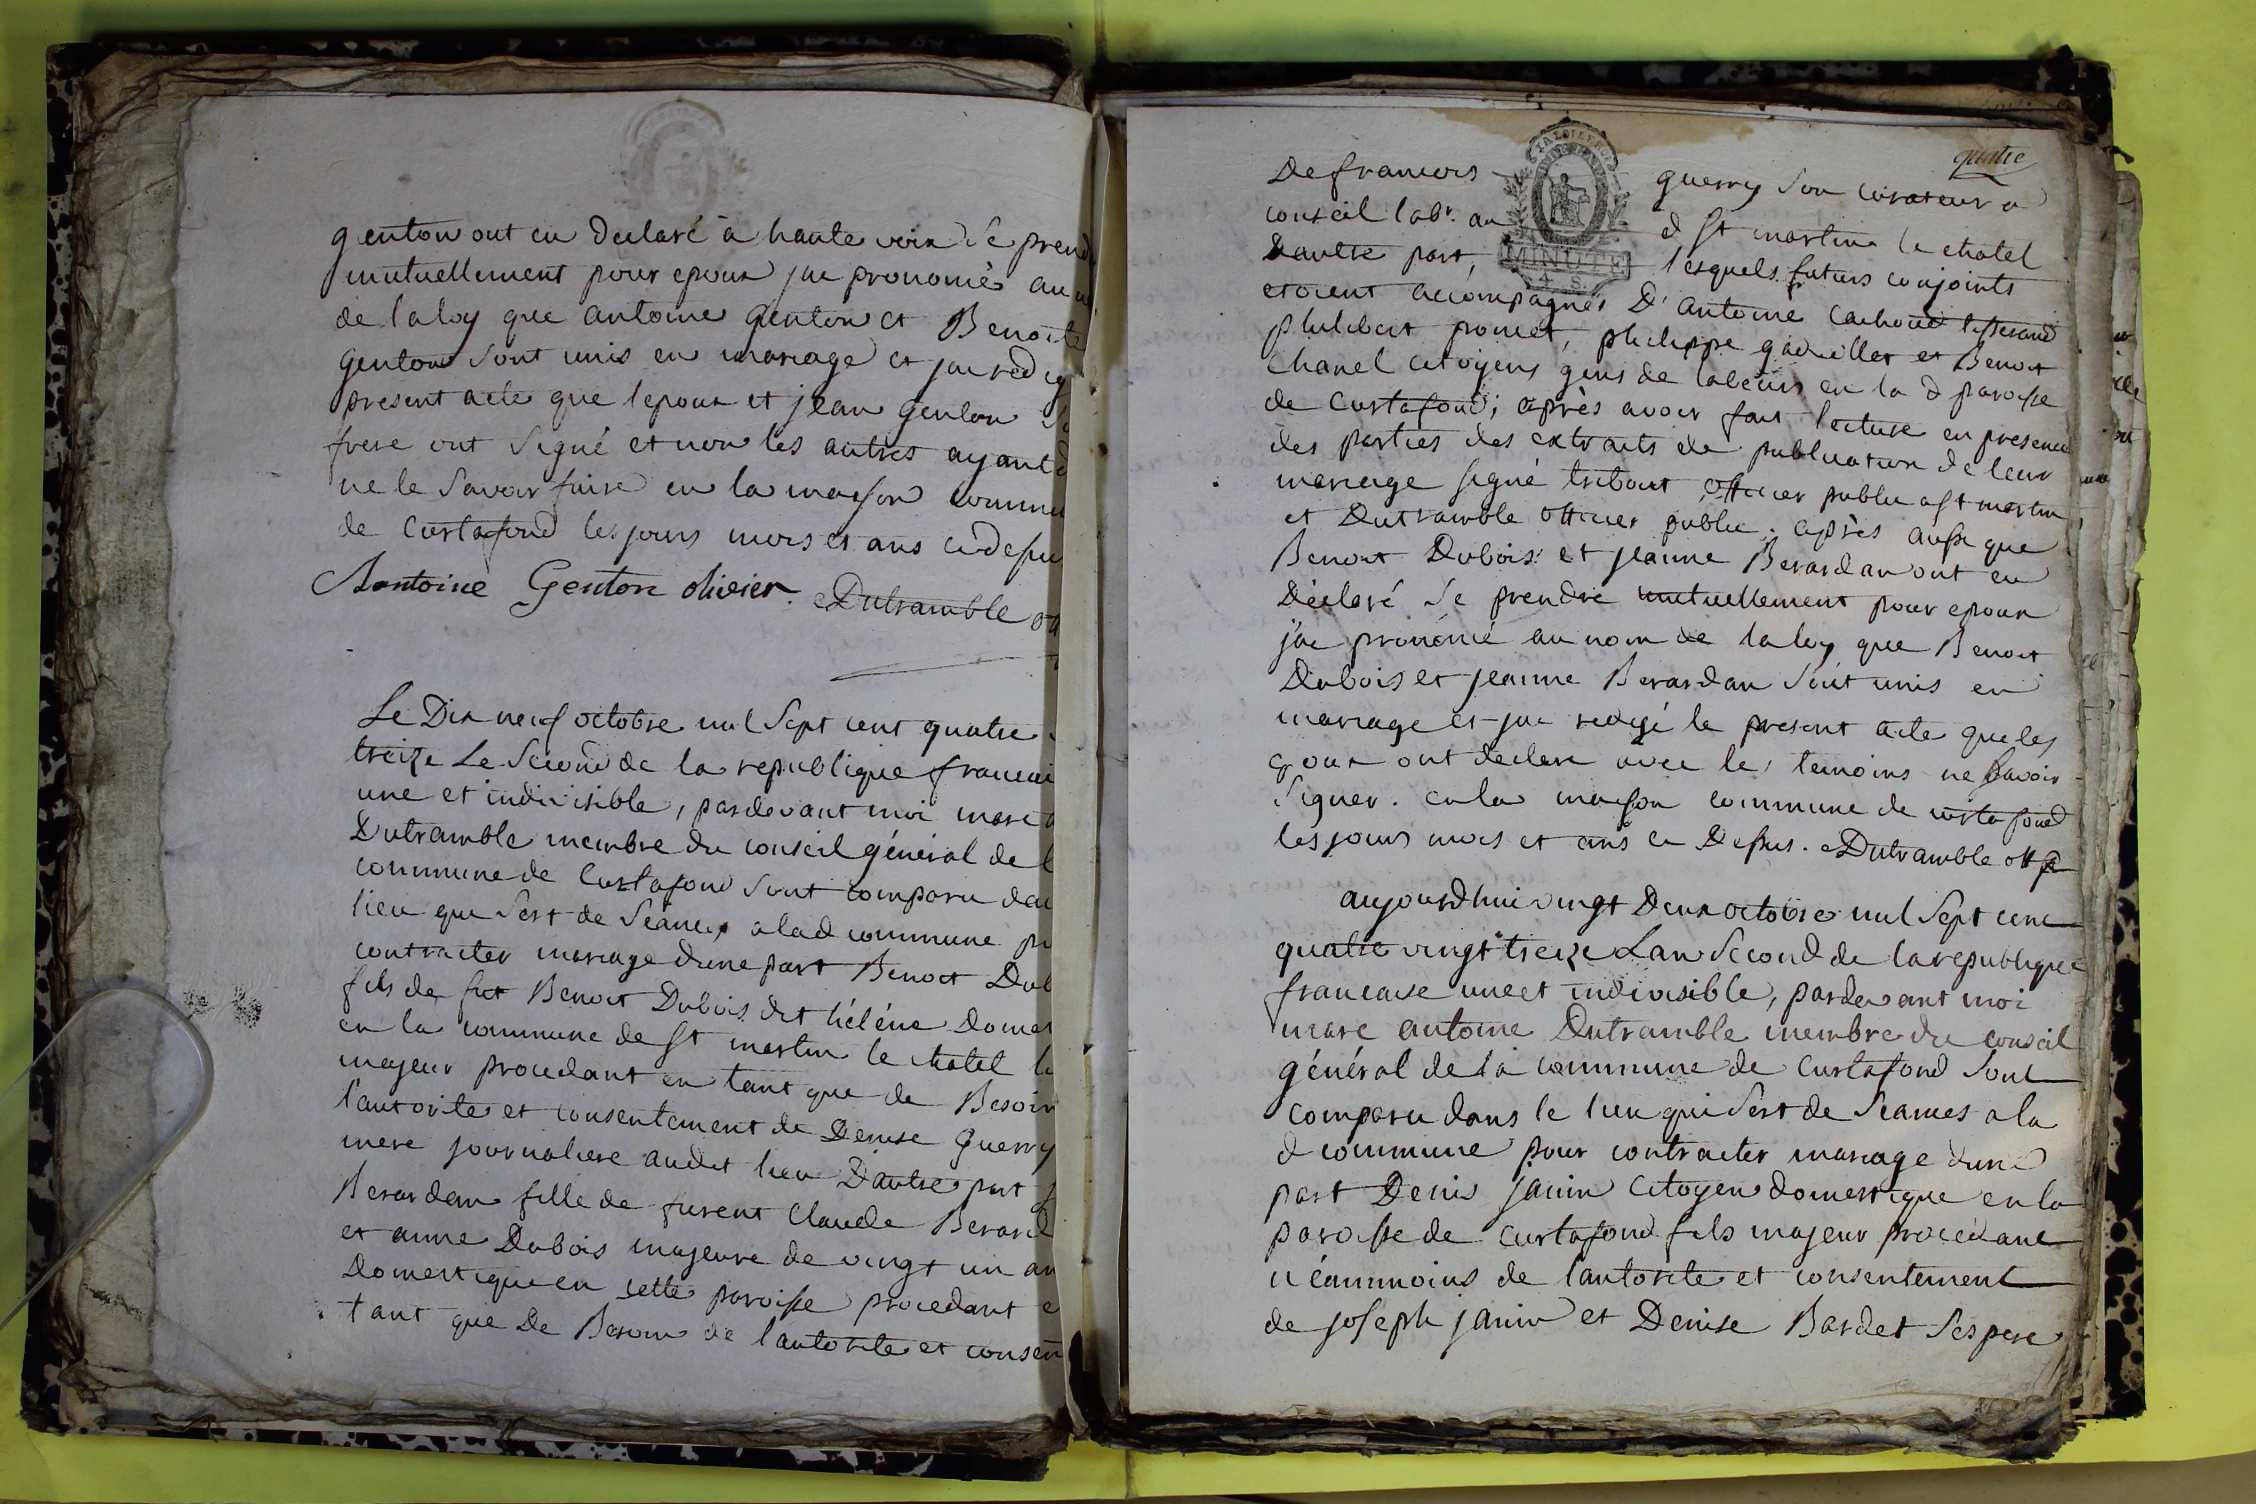 genton ont eu declaré a haute voix se prend
mutuellement pour epoux jai prononcé au n
de la loy que antoine genton et Benoite
genton sont unis en mariage et jai redig
present acte que lepoux et jean genton
frere ont signé et non les autres ayant d
ne le savoir faire en la maison commu
de Curtafond les jours mois et ans cidessu
Antoine Genton olivier. Dutramble off
Le Dix neuf octobre mil sept cent quatre
treize Le second de la republique francai
une et indivisible, pardevant moi marc a
Dutramble membre du conseil général de l
commune de Curtafond sont comparu dan
lieu que sert de séances a lad commune po
contracter mariage dune part Benoit Dub
fils de fut Benoit Dubois dit héléne Domes
en la commune de St martin le chatel le
majeur procedant en tant que de Besoin
lautorite et consentement de Denise Guerry
mere journaliere audit lieu Dautre part j
Berardan fille de furent Claude Berard
et anne Dubois majeure de vingt un an
Domestique en cette paroisse procedant e
tant que De Besoin de lautorite et consen
quatre
De francois guerry son curateur a
conseil labr. au d St martin le chatel
Dautre part, lesquels futurs conjoints
MINUTE
4 S.
etoient accompagnés D'antoine Cachoud tisserand
philibert poncet, philippe et Benoit
Chanel citoyens gens de labeurs en la d paroisse
de Curtafond; après avoir fait lecture en presence
des parties des extraits de publication de leur
mariage signé tribout officier public a St martin
et Dutramble officier public. après aussi que
Benoit Dubois et jeanne Berardan ont eu
Déclaré se prendre mutuellement pour epoux
jai prononcé au nom de la loy que Benoit
Dubois et jeanne Berardan sont unis en
mariage et jai redigé le present acte que les
epoux ont declaré avec les temoins ne savoir
signer. en la maison commune de curtafond
les jours mois et ans ci Dessus. Dutramble off p
aujourdhui vingt Deux octobre mil sept cent
quatre vingt treize Lan second de la republique
francaise une et indivisible, pardevant moi
marc antoine Dutramble membre du conseil
général de la commune de Curtafond sont
comparu dans le lieu qui sert de seances a la
d commune pour contracter mariage dune
part Denis janin citoyen domestique en la
paroisse de Curtafond fils majeur procedant
néanmoins de lautorite et consentement
de joseph janin et Denise Bardet ses pere